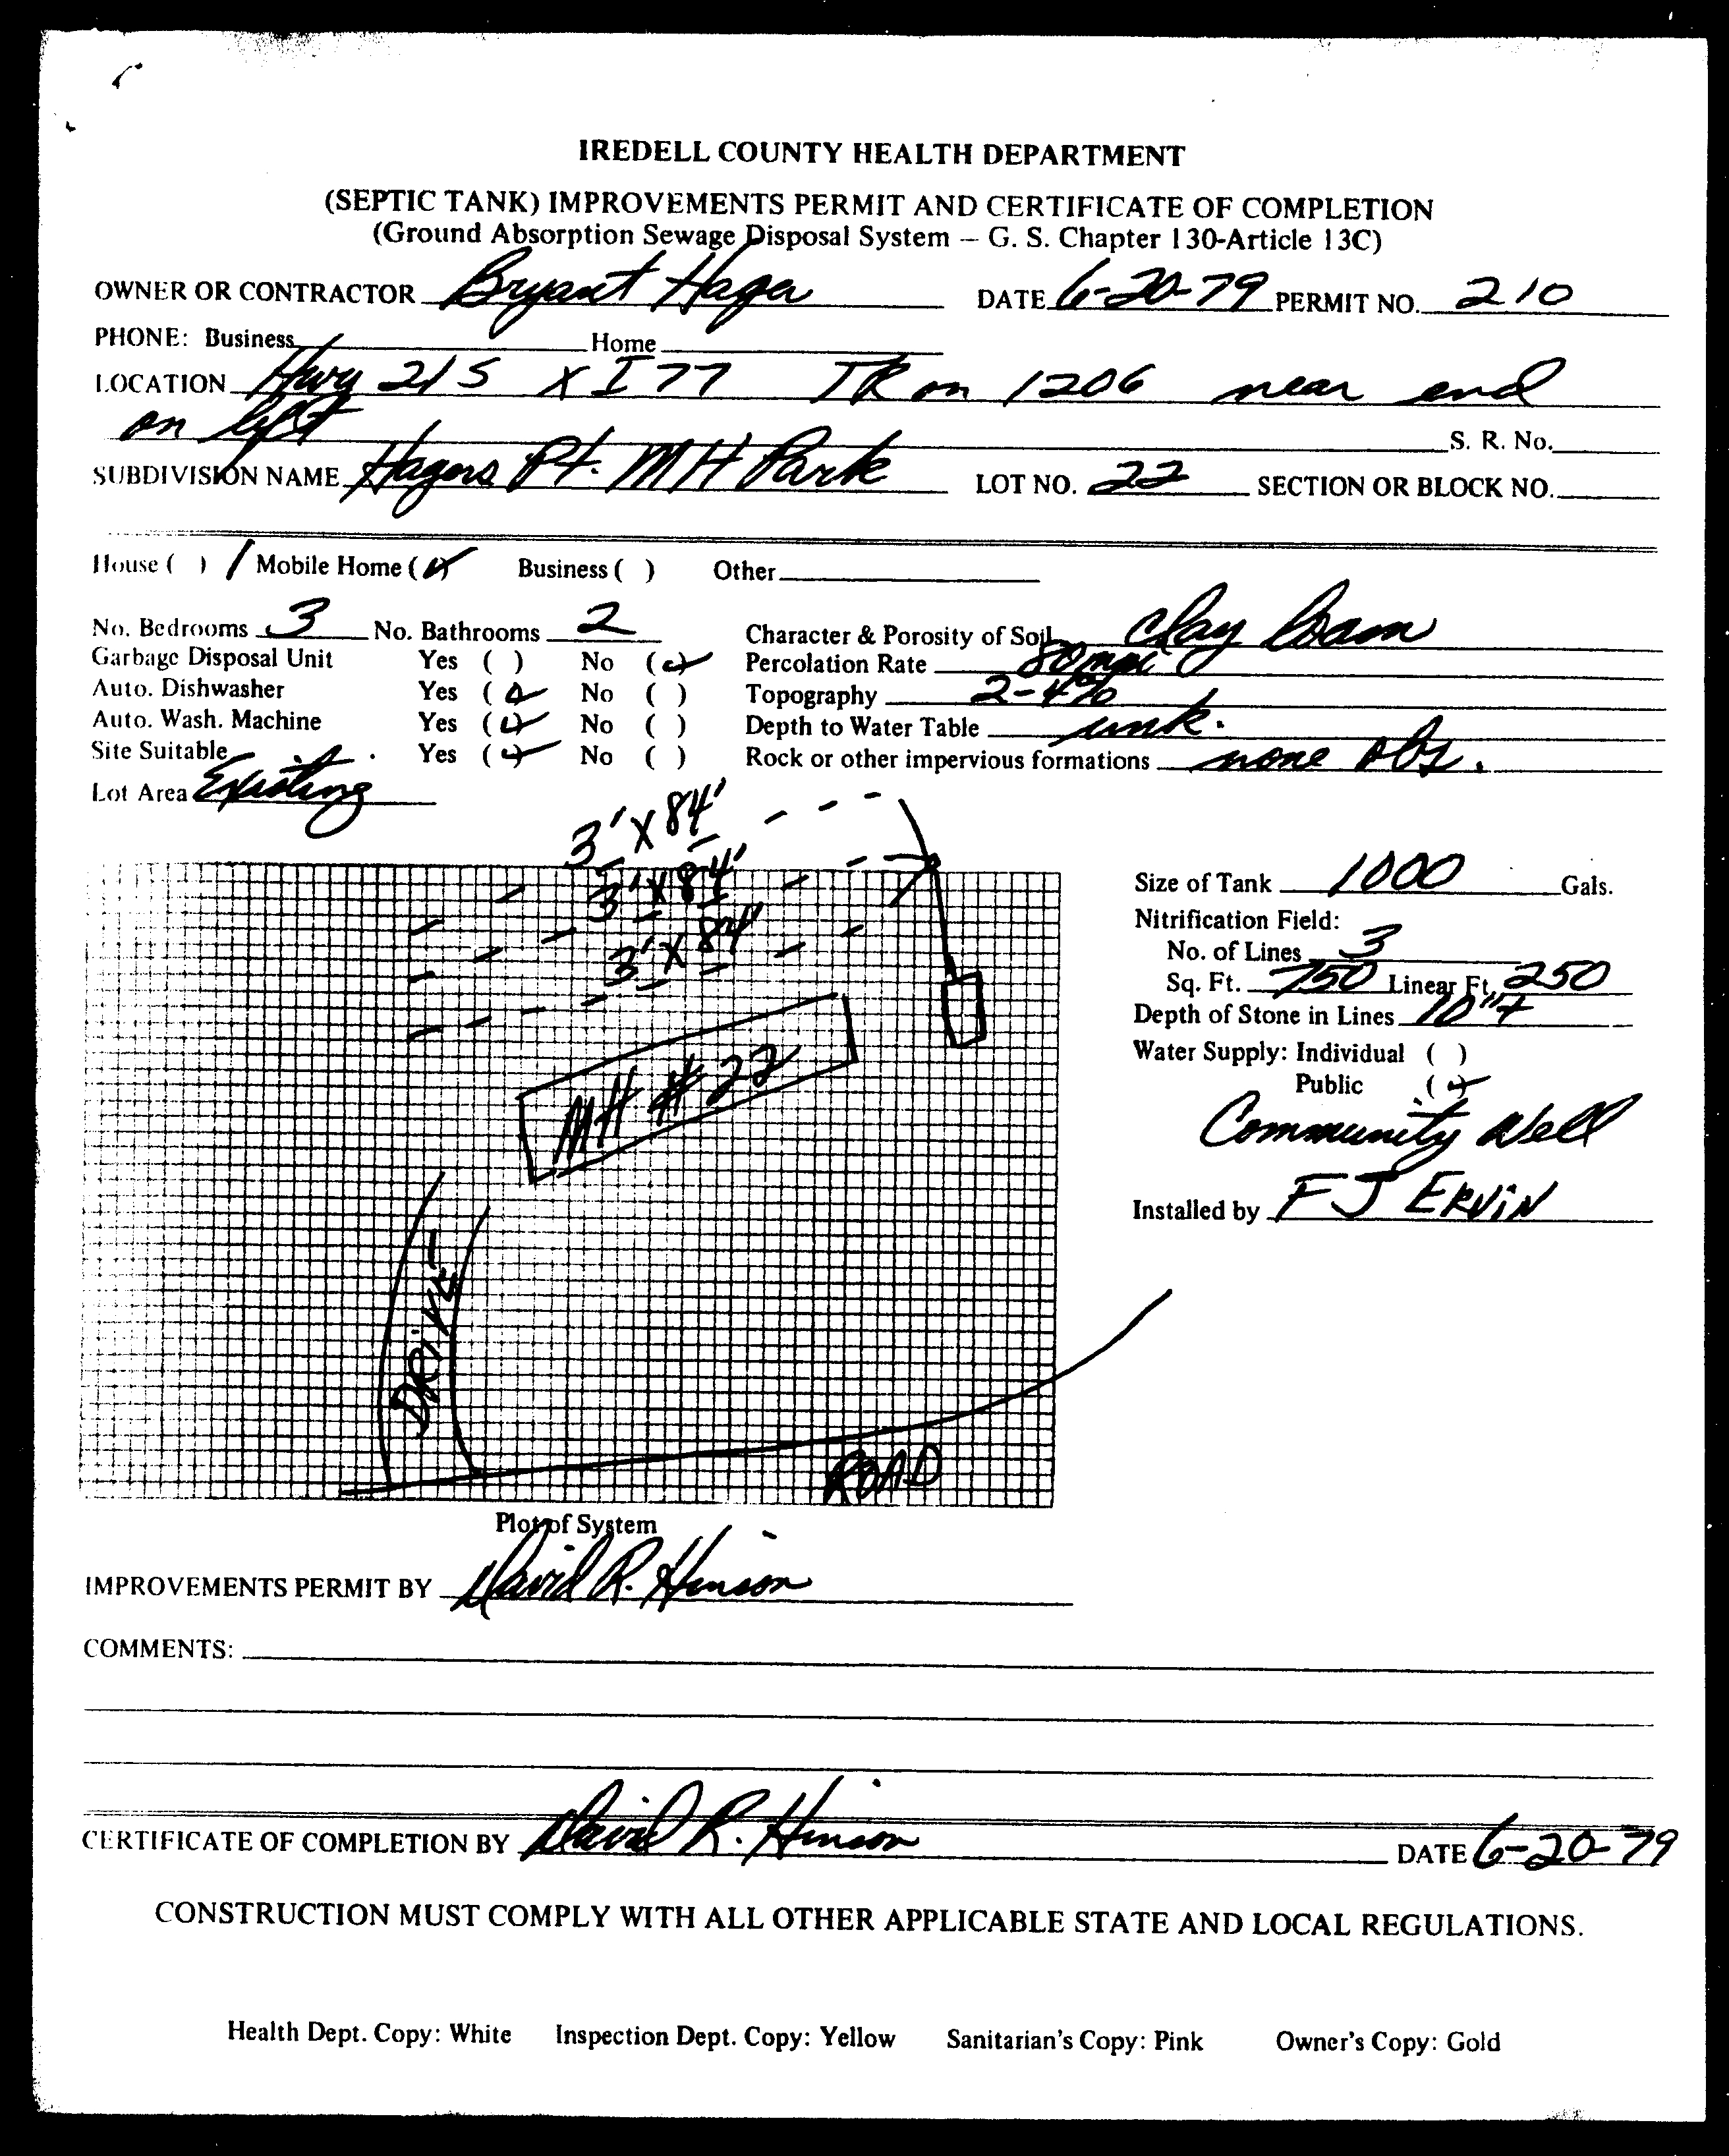 IREDELL COUNTY HEALTH DEPARTMENT
(SEPTIC TANK) IMPROVEMENTS PERMIT AND CERTIFICATE OF COMPLETION
(Ground Absorption Sewage Disposal System – G. S. Chapter 130-Article 13C)
OWNER OR CONTRACTOR Bryant Hager DATE 6-20-79 PERMIT NO. 210
PHONE: Business Home
LOCATION Hwy 21 S X I 77 TR on 1206 near end
on left S. R. No.
SUBDIVISION NAME Hagers Pt. MH Park LOT NO. 22 SECTION OR BLOCK NO.
House ( ) / Mobile Home (✓) Business ( ) Other
No. Bedrooms 3 No. Bathrooms 2 Character & Porosity of Soil Clay loam
Garbage Disposal Unit Yes ( ) No (✓) Percolation Rate 80 mpi
Auto. Dishwasher Yes (✓) No ( ) Topography 2-4%
Auto. Wash. Machine Yes (✓) No ( ) Depth to Water Table unk.
Site Suitable Yes (✓) No ( ) Rock or other impervious formations none obs.
Lot Area Existing
3' X 84'
3' X 84'
3' X 84'
MH # 22
DRIVE
ROAD
Size of Tank 1000 Gals.
Nitrification Field:
No. of Lines 3
Sq. Ft. 750 Linear Ft. 250
Depth of Stone in Lines 10"+
Water Supply: Individual ( )
Public (✓)
Community Well
Installed by F J ERViN
Plot of System
IMPROVEMENTS PERMIT BY David R. Hinson
COMMENTS:
CERTIFICATE OF COMPLETION BY David R. Hinson DATE 6-20-79
CONSTRUCTION MUST COMPLY WITH ALL OTHER APPLICABLE STATE AND LOCAL REGULATIONS.
Health Dept. Copy: White Inspection Dept. Copy: Yellow Sanitarian's Copy: Pink Owner's Copy: Gold